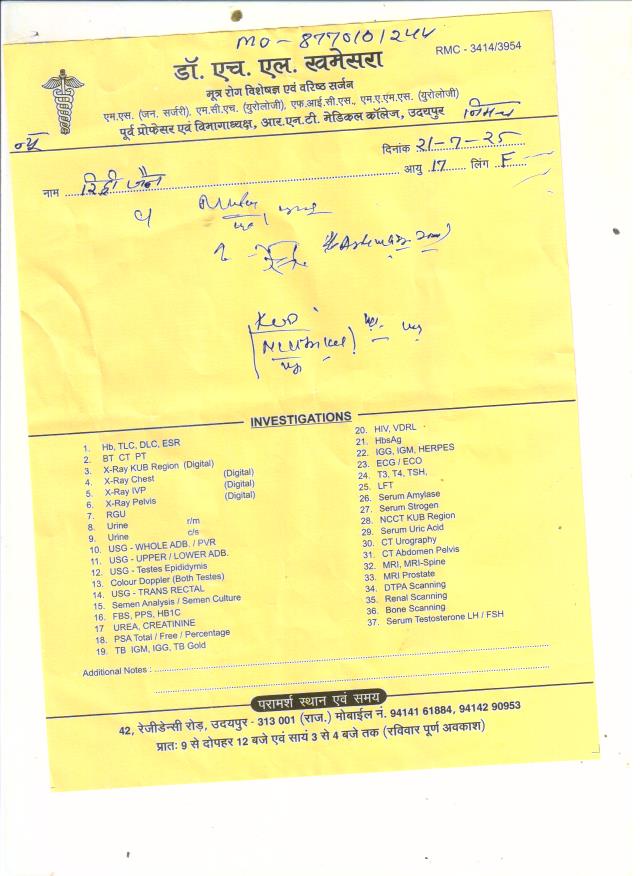 MO - 8770101244
RMC - 3414/3954
डॉ. एच. एल. खमेसरा
मूत्र रोग विशेषज्ञ एवं वरिष्ठ सर्जन
एम.एस. (जन. सर्जरी), एम.सी.एच. (युरोलोजी), एफ.आई.सी.एस., एम.ए.एम.एस. (युरोलोजी)
पूर्व प्रोफेसर एवं विभागाध्यक्ष, आर.एन.टी. मेडिकल कॉलेज, उदयपुर
दिनांक 21-7-25
नाम रिद्धी जैन आयु 17 लिंग F
KUB
INVESTIGATIONS
1. Hb, TLC, DLC, ESR
2. BT CT PT
3. X-Ray KUB Region (Digital)
4. X-Ray Chest (Digital)
5. X-Ray IVP (Digital)
6. X-Ray Pelvis (Digital)
7. RGU
8. Urine r/m
9. Urine c/s
10. USG - WHOLE ADB. / PVR
11. USG - UPPER / LOWER ADB.
12. USG - Testes Epididymis
13. Colour Doppler (Both Testes)
14. USG - TRANS RECTAL
15. Semen Analysis / Semen Culture
16. FBS, PPS, HB1C
17 UREA, CREATININE
18. PSA Total / Free / Percentage
19. TB IGM, IGG, TB Gold
20. HIV, VDRL
21. HbsAg
22. IGG, IGM, HERPES
23. ECG / ECO
24. T3, T4, TSH,
25. LFT
26. Serum Amylase
27. Serum Strogen
28. NCCT KUB Region
29. Serum Uric Acid
30. CT Urography
31. CT Abdomen Pelvis
32. MRI, MRI-Spine
33. MRI Prostate
34. DTPA Scanning
35. Renal Scanning
36. Bone Scanning
37. Serum Testosterone LH / FSH
Additional Notes :
परामर्श स्थान एवं समय
42, रेजीडेन्सी रोड़, उदयपुर - 313 001 (राज.) मोबाईल नं. 94141 61884, 94142 90953
प्रातः 9 से दोपहर 12 बजे एवं सायं 3 से 4 बजे तक (रविवार पूर्ण अवकाश)